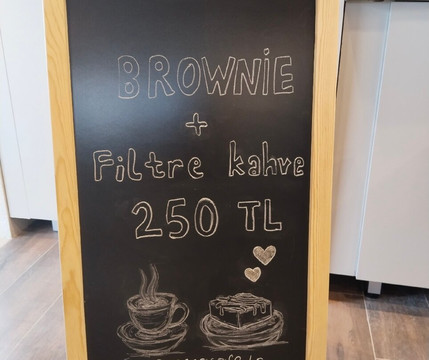 BROWNİE
+
Filtre kahve
250 TL